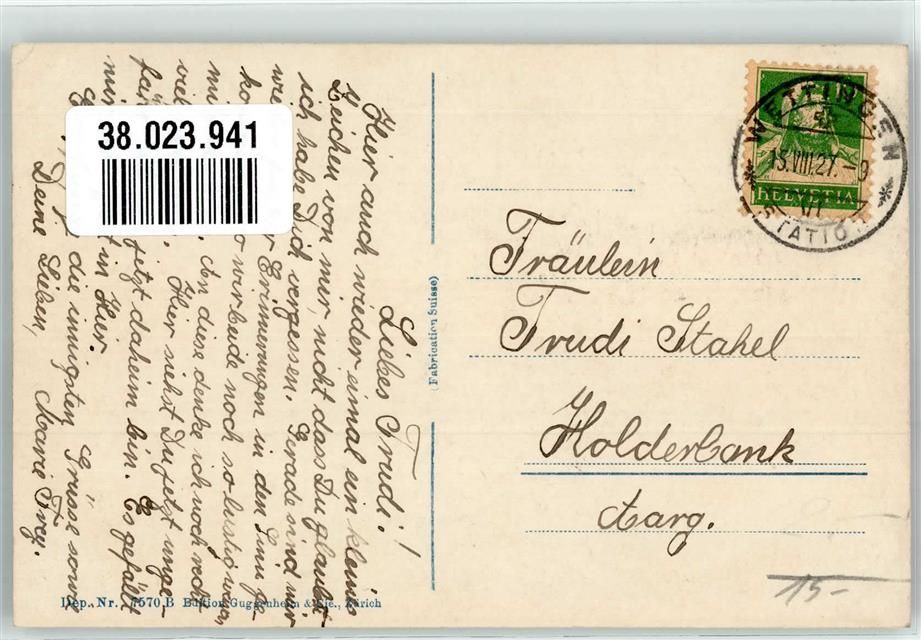 Liebes Trudi!
Hier auch wieder einmal ein kleines
Zeichen von mir, nicht dass Du glaubst
ich habe Dich vergessen. Gerade sind mir
wie Erinnerungen in den Sinn ge-
ko wir beide noch so lustig waren
mi An diese denke ich noch
viel Hier siehst Du jetzt unge-
fäh jetzt daheim bin. Es gefällt
mir t in Hier.
die innigsten Grüsse sowie
Deine Lieben,
Marie Frey.
38.023.941
(Fabrication Suisse)
Dep. Nr. 7570 B Edition Guggenheim & Cie., Zürich
WETTINGEN
15.VIII.27.-9
STATION
HELVETIA
Fräulein
Trudi Stahel
Holderbank
Aarg.
15-